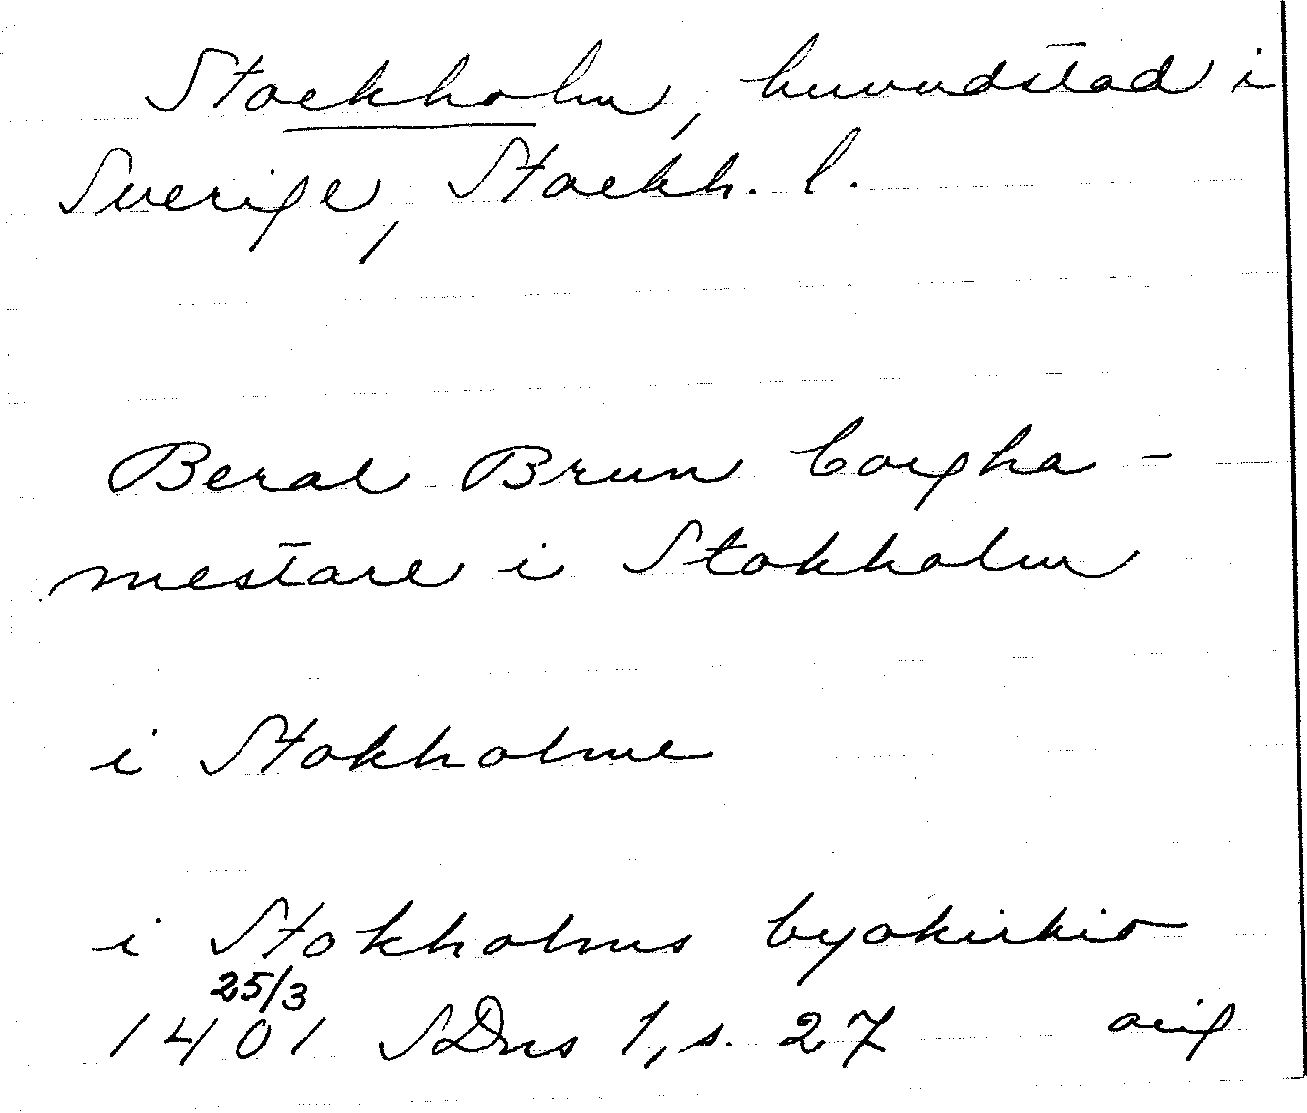 Stockholm, huvudstad i
Sverige, Stockh. l.
Beral Brun borgha-
mestare i Stokholm
i Stokholme
i Stokholms byokirkio
25/3
1401 SDns 1, s. 27 orig